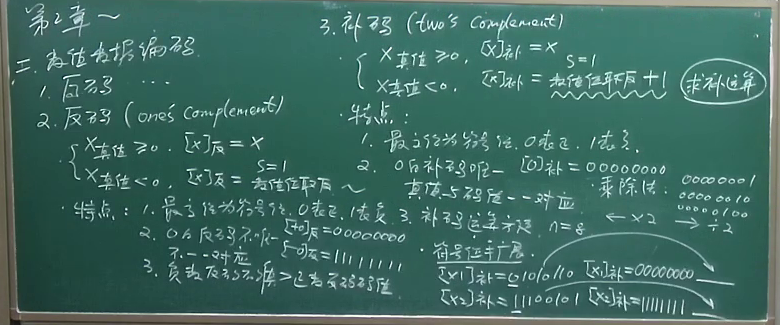 第2章~
二. 数值数据编码
1. 原码 ...
2. 反码 (one's complement)
X真值≥0, [x]反=X
S=1
X真值<0, [x]反=数值位取反~
·特点: 1. 最高位为符号位, 0表正, 1表负
2. 0的反码不唯一 [+0]反=00000000
[-0]反=11111111
不一一对应
3. 负数反码码值>正数反码码值
3. 补码 (two's complement)
X真值≥0, [x]补=X
S=1
X真值<0, [x]补=数值位取反+1
求补运算
·特点:
1. 最高位为符号位, 0表正, 1表负.
2. 0的补码唯一 [0]补=00000000
真值与码值一一对应
3. 补码运算方便, n=8
·乘除法: 00000001
00000010
00000100
←×2 →÷2
·符号位扩展.
[X1]补=01010110 [X1]补=00000000
[X2]补=11100101 [X2]补=11111111